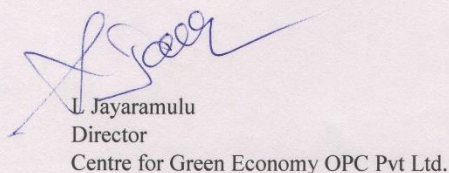 L Jayaramulu
Director
Centre for Green Economy OPC Pvt Ltd.